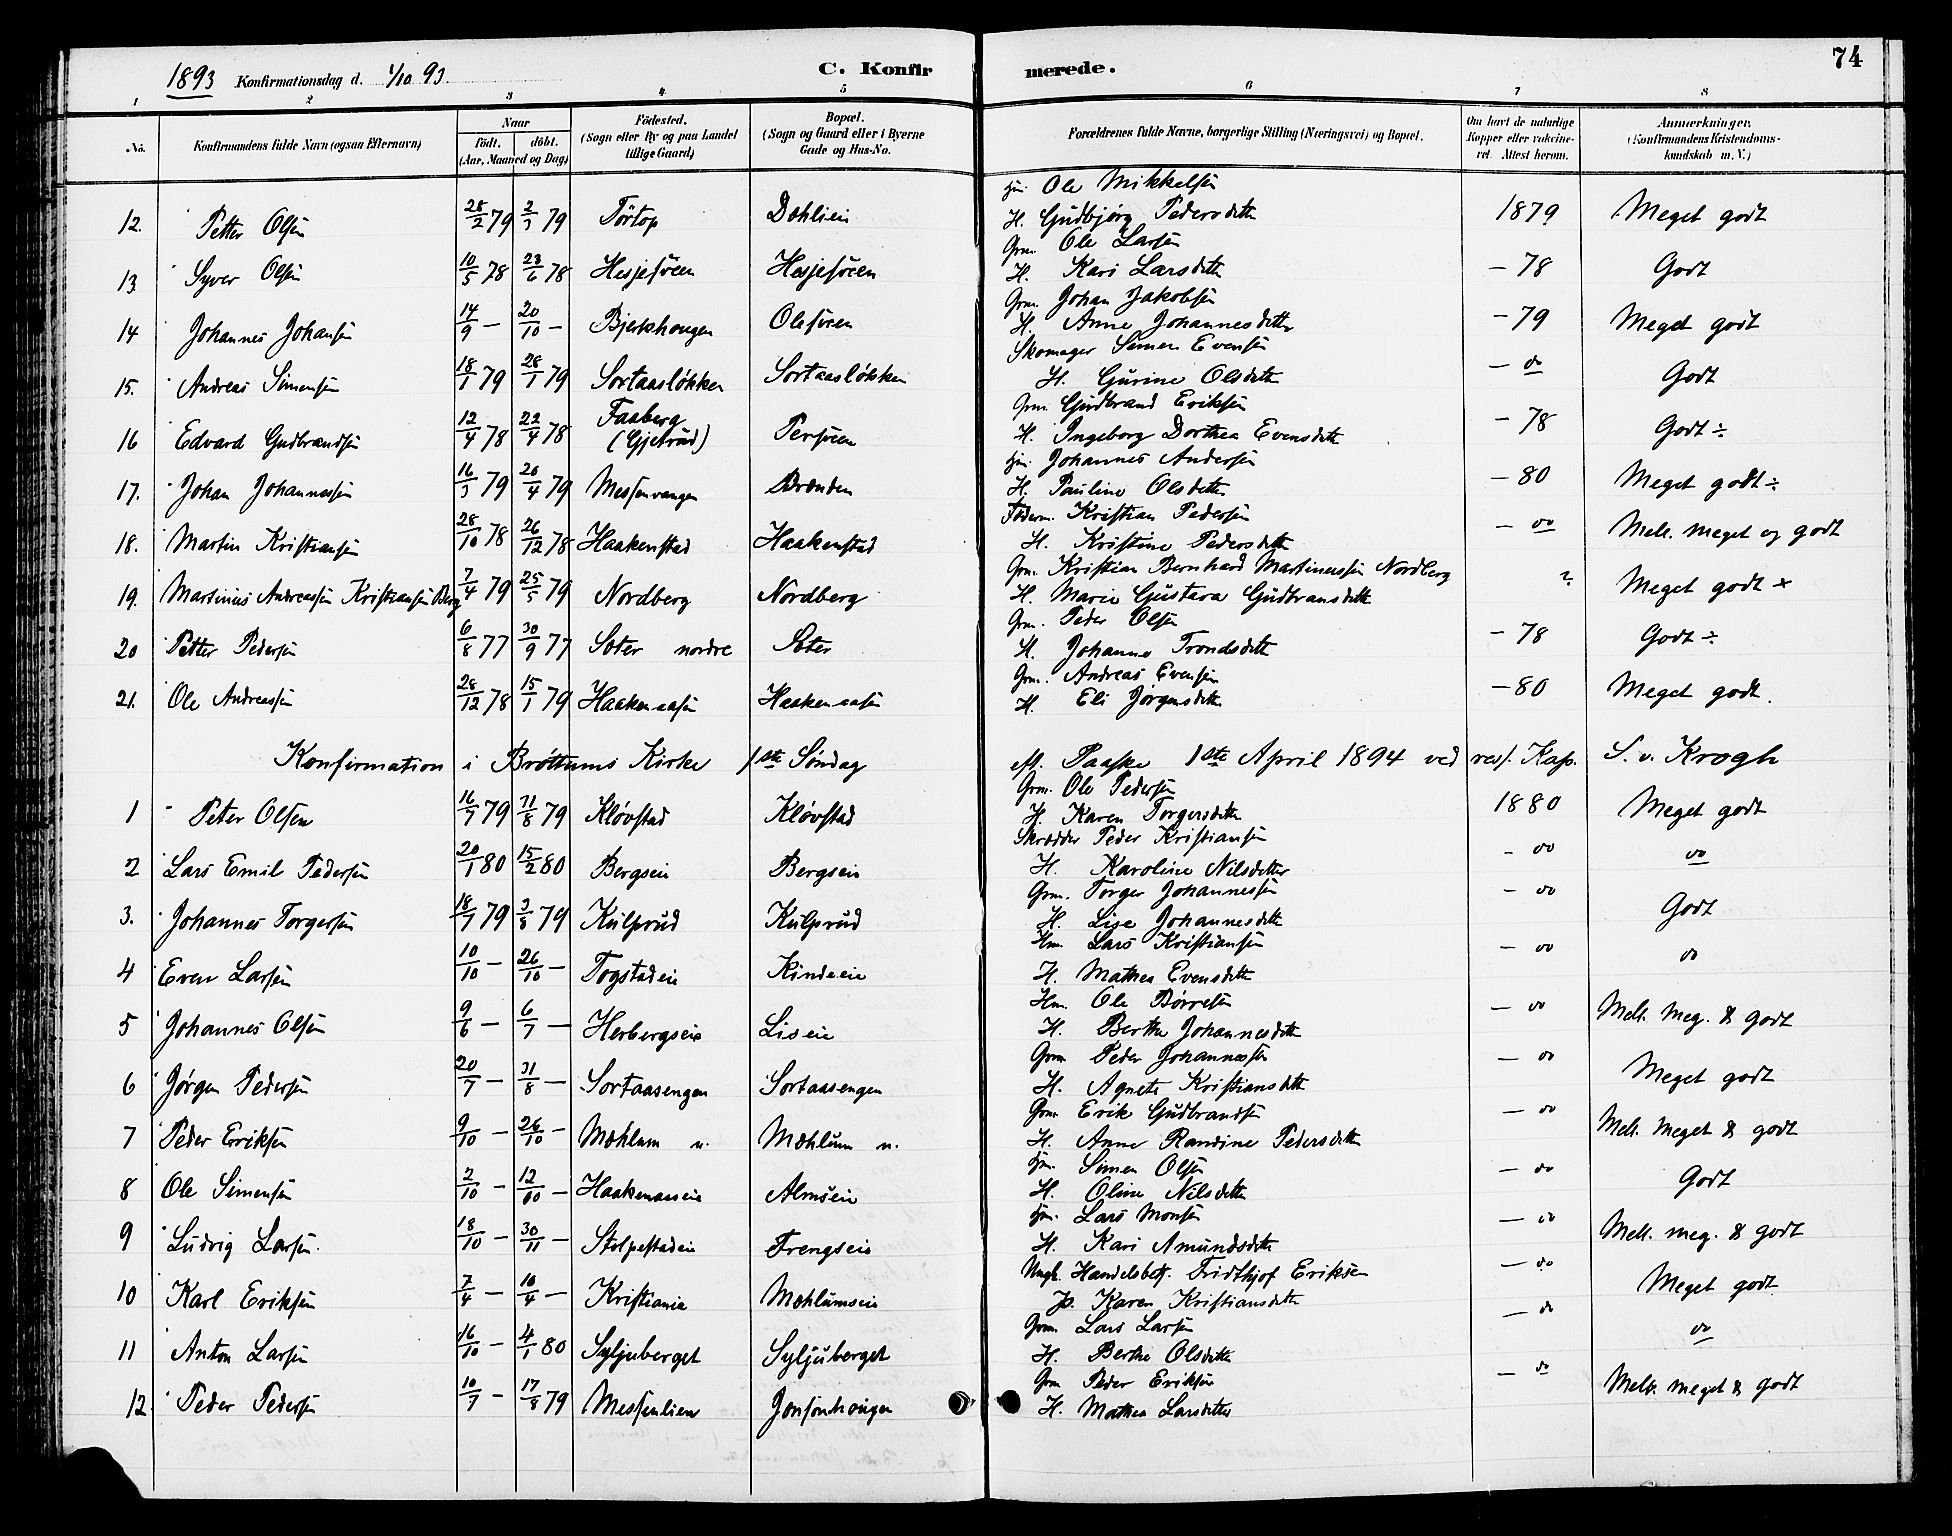 74
1893 Konfirmationsdag d. 1/10 93. C. Konfirmerede.
1 2 3 4 5 6 7 8
No. Konfirmandens fulde Navn (ogsaa Efternavn) Naar født. døbt. (Aar, Maaned og Dag) Fødested. (Sogn eller By og paa Landet tillige Gaard) Bopæl. (Sogn og Gaard eller i Byerne Gade og Hus-No. Forældrenes fulde Navne, borgerlige Stilling (Næringsvei) og Bopæl. Om havt de naturlige Kopper eller vaccineret. Attest herom. Anmærkninger. (Konfirmandens Kristendomskundskab m. V.)
12. Petter Olsen 28/2 79 2/3 79 Törtop Dahlien Hm. Ole Mikkelsen H. Gudbjørg Pedersdatter 1879 Meget godt
13 Syver Olsen 10/5 78 23/6 78 Hesjesveen Hesjesveen Grm. Ole Larsen H. Kari Larsdatter - 78 Godt
14 Johannes Johansen 14/9 - 20/10 - Bjerkhougen Olesveen Grm. Johan Jakobsen H. Anne Johannesdatter - 79 Meget godt
15. Andreas Simensen 18/1 79 28/1 79 Sortaasløkken Sortaasløkken Skomager Simen Evensen H. Gurine Olsdatter - do Godt
16 Edvard Gudbrandsen 12/4 78 22/4 78 Faaberg (Gjetrud) Persveen Grm. Gudbrand Eriksen H. Ingeborg Dorthea Evensdatter - 78 Godt ÷
17. Johan Johannessen 16/3 79 20/4 79 Messenvangen Brænden Hm. Johannes Andersen H. Pauline Olsdatter - 80 Meget godt ÷
18. Martin Kristiansen 28/10 78 26/12 78 Haakenstad Haakenstad Føderm. Kristian Pedersen H. Kristine Pedersdatter - do Mell. meget og godt
19. Martinius Andreassen Kristiansen Berg 7/4 79 25/5 79 Nordberg Nordberg Grm. Kristian Bernhard Martinussen Nordberg H. Marie Gustava Gudbransdatter ? Meget godt +
20 Petter Pedersen 6/8 77 30/9 77 Sæter nordre Sæter Grm. Peder Olsen H. Johanne Trondsdatter - 78 Godt ÷
21. Ole Andreassen 28/12 78 15/1 79 Haakenaasen Haakenaasen Grm. Andreas Evensen H. Eli Jørgensdatter - 80 Meget godt.
Konfirmation i Brøttums Kirke 1ste Søndag eft. Paaske 1ste April 1894 ved res. Kap. S. v. Krogh
1 Peter Olsen 16/7 79 31/8 79 Kløvstad Kløvstad Grm. Ole Pedersen H. Karen Torgersdatter 1880 Meget godt
2 Lars Emil Pedersen 20/1 80 15/2 80 Bergseie Bergseie Skrædder Peder Kristiansen H. Karoline Nilsdatter - do do
3. Johannes Torgersen 18/7 79 3/8 79 Kulprud Kulprud Grm. Torger Johannessen H. Lise Johannesdatter - do Godt
4 Even Larsen 10/10 - 26/10 - Togstadeie Kindseie Hm. Lars Kristiansen H. Mathea Evensdatter - do do
5 Johannes Olsen 9/6 - 6/7 - Herbergseie Liseie Hm. Ole Børresen H. Berthe Johannesdatter - do Mell. Meg. & godt
6 Jørgen Pedersen 20/7 - 31/8 - Sortaasengen Sortaasengen Grm Peder Johannessen H. Agnete Kristiansdatter - do Meget godt
7 Peder Eriksen 9/10 - 26/10 - Mæhlum n. Mæhlum n. Grm. Erik Gudbrandsen H. Anne Randine Pedersdatter - do Mell. Meget & godt
8 Ole Simensen 2/10 - 12/10 - Haakenaaseie Almseie Hm. Simen Olsen H. Oline Nilsdatter - do Godt
9 Ludvig Larsen. 18/10 - 30/11 - Stolpestadeie Frengseie Hm. Lars Monsen H. Kari Amundsdatter - do Mell. meg. & godt
10 Karl Eriksen 7/4 - 10/4 - Kristiania Mæhlumseie Ungk. Handelsbetj. Fridthjof Eriksen Jp. Karen Kristiansdatter - do Meget godt
11 Anton Larsen 16/10 - 4/1 80 Syljuberget Syljuberget Grm. Lars Larsen H. Berthe Olsdatter - do do
12 Peder Pedersen 10/7 - 17/8 79 Messenlien Jonsonhougen Grm Peder Eriksen H. Mathea Larsdatter - do Mell. meget & godt